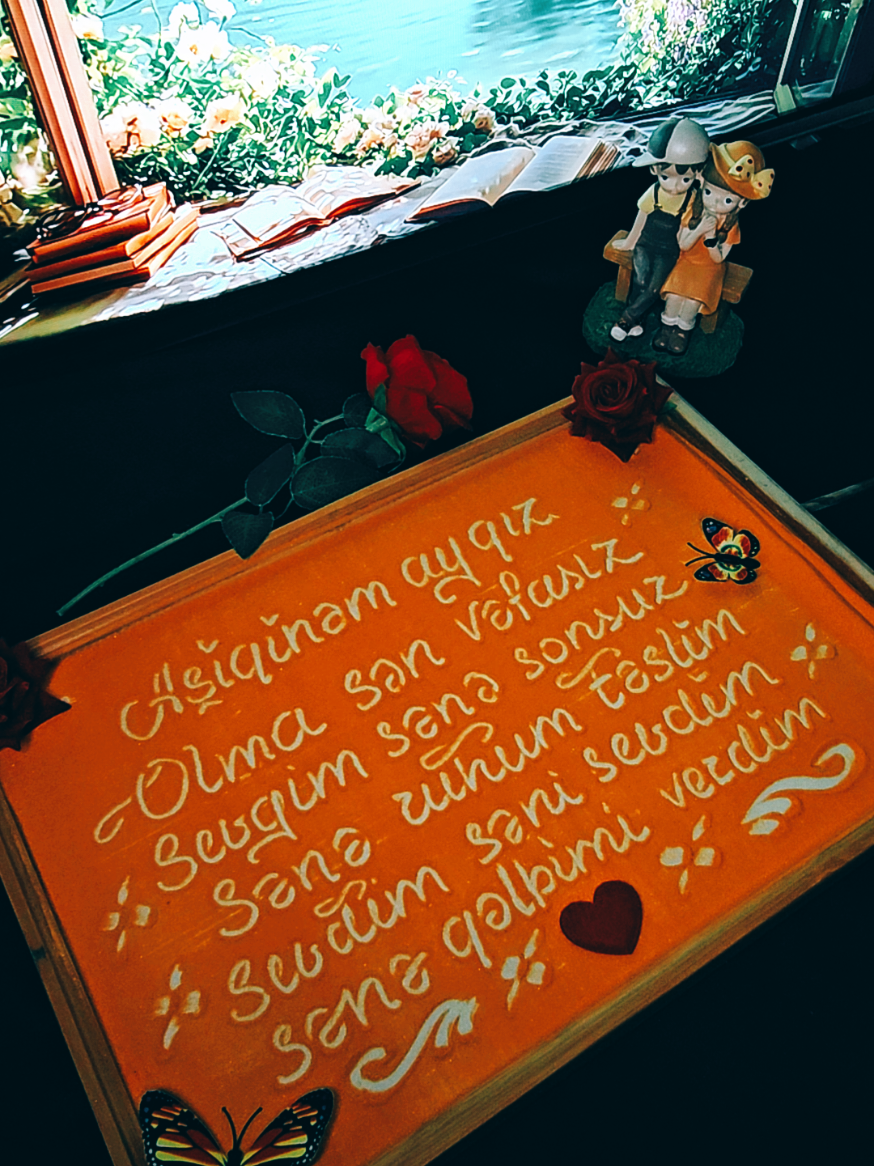 Aşiqinəm ay qız
Olma sən vəfasız
Sevgim sənə sonsuz
Sənə ruhum təslim
Sevdim səni sevdim
Sənə qəlbimi verdim